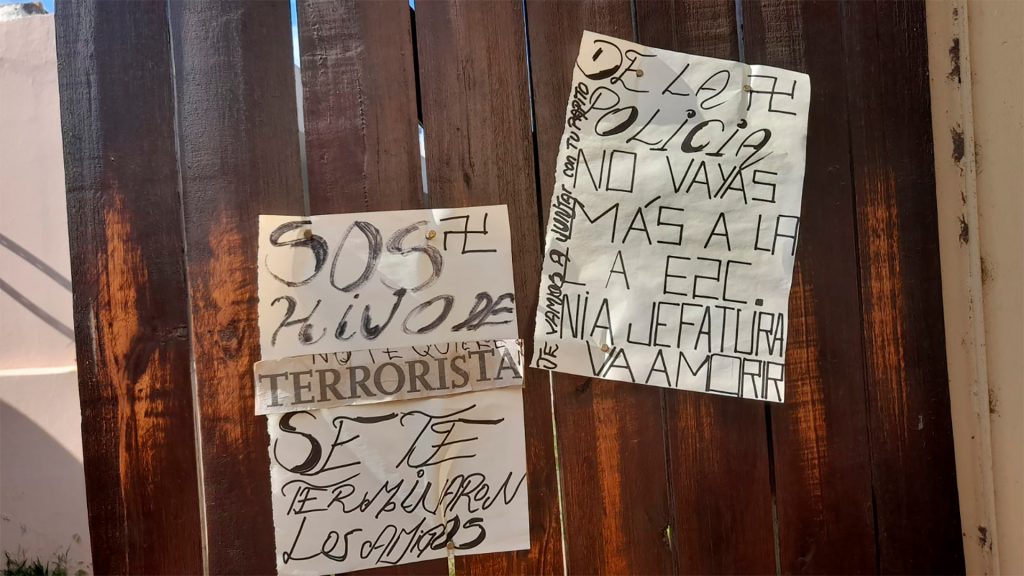 SOS 卍
HiJO DE
NO TE QUIERE
TERRORISTA
SE TE
TERMINARON
LOS AMIGOS
DE LA 卍
POLICIA
NO VAYAS
MÁS A LA
E2C.
NI A JEFATURA
VA A MORIR
TE VAMOS A JUNTAR CON TU PAPA